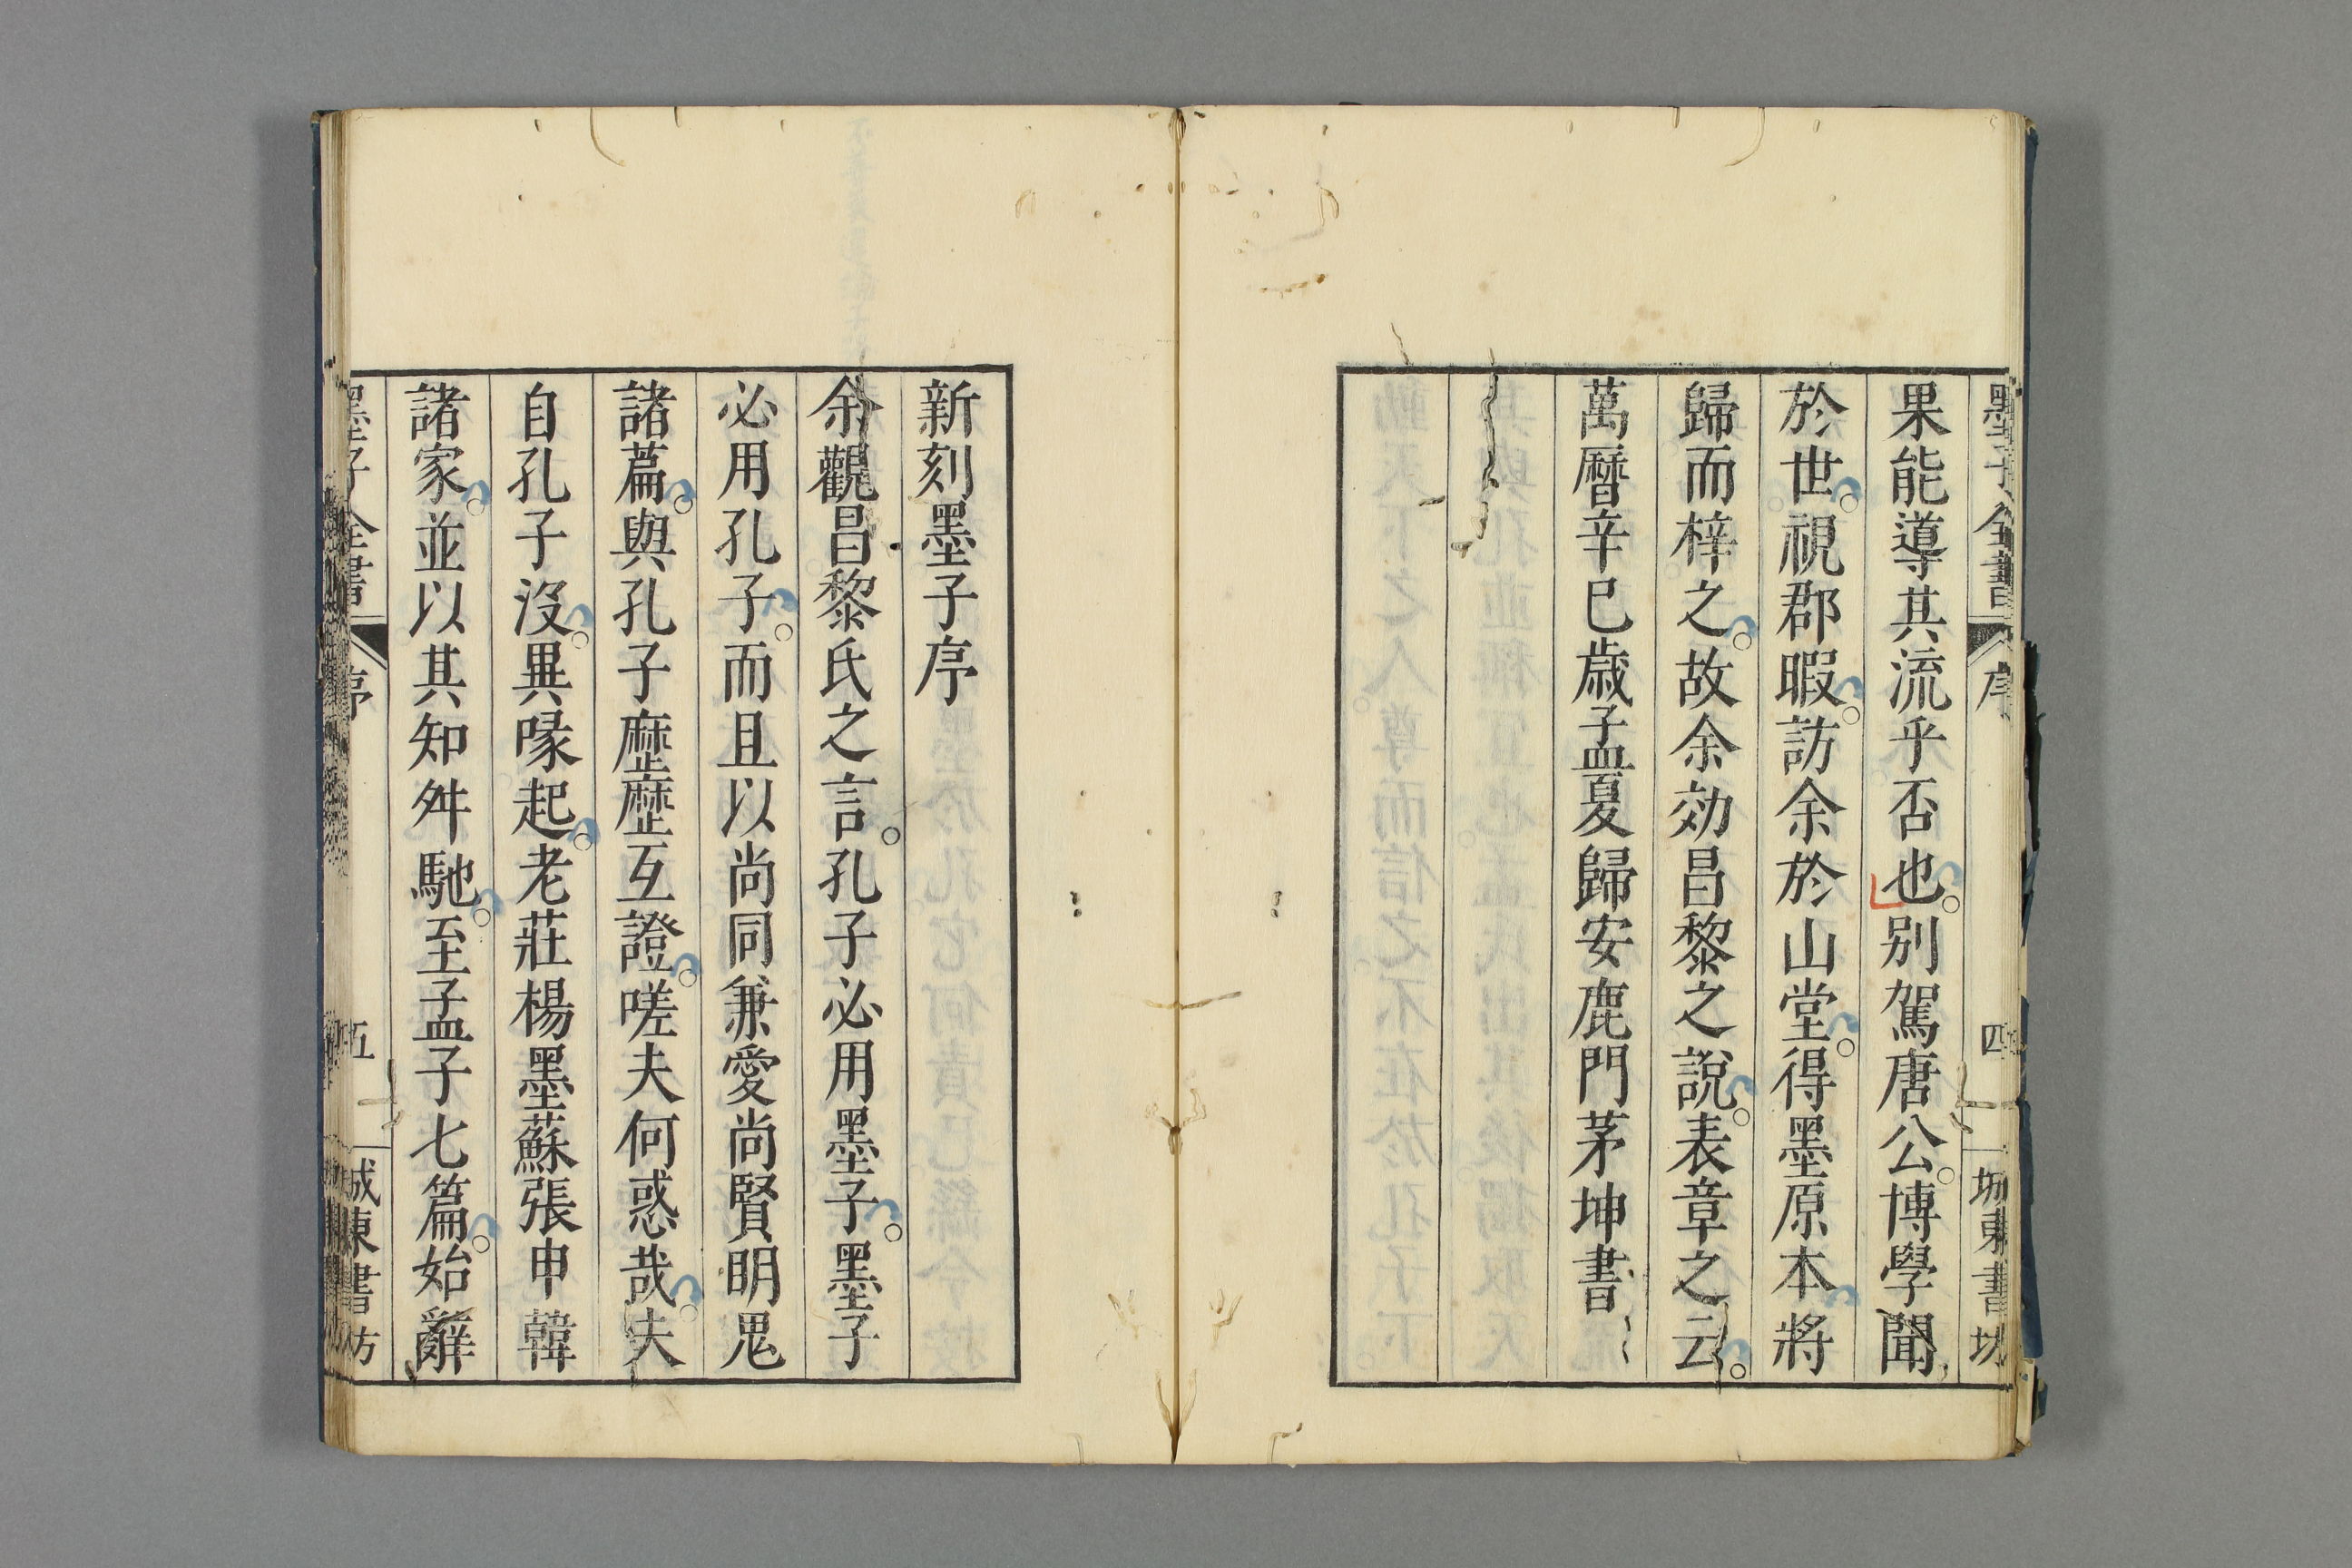 墨子全書 序 四 城東書坊
果能導其流乎否也。别駕唐公。博學聞
於世。視郡暇。訪余於山堂。得墨原本將
歸而梓之。故余効昌黎之說。表章之云。
萬曆辛巳歲孟夏歸安鹿門茅坤書
新刻墨子序
余觀昌黎氏之言。孔子必用墨子。墨子
必用孔子。而且以尚同兼愛尚賢明鬼
諸篇。與孔子歷歷互證。嗟夫何惑哉。夫
自孔子沒。異喙起。老莊楊墨蘇張申韓
諸家。並以其知舛馳。至孟子七篇。始辭
墨子全書 序 五 城東書坊